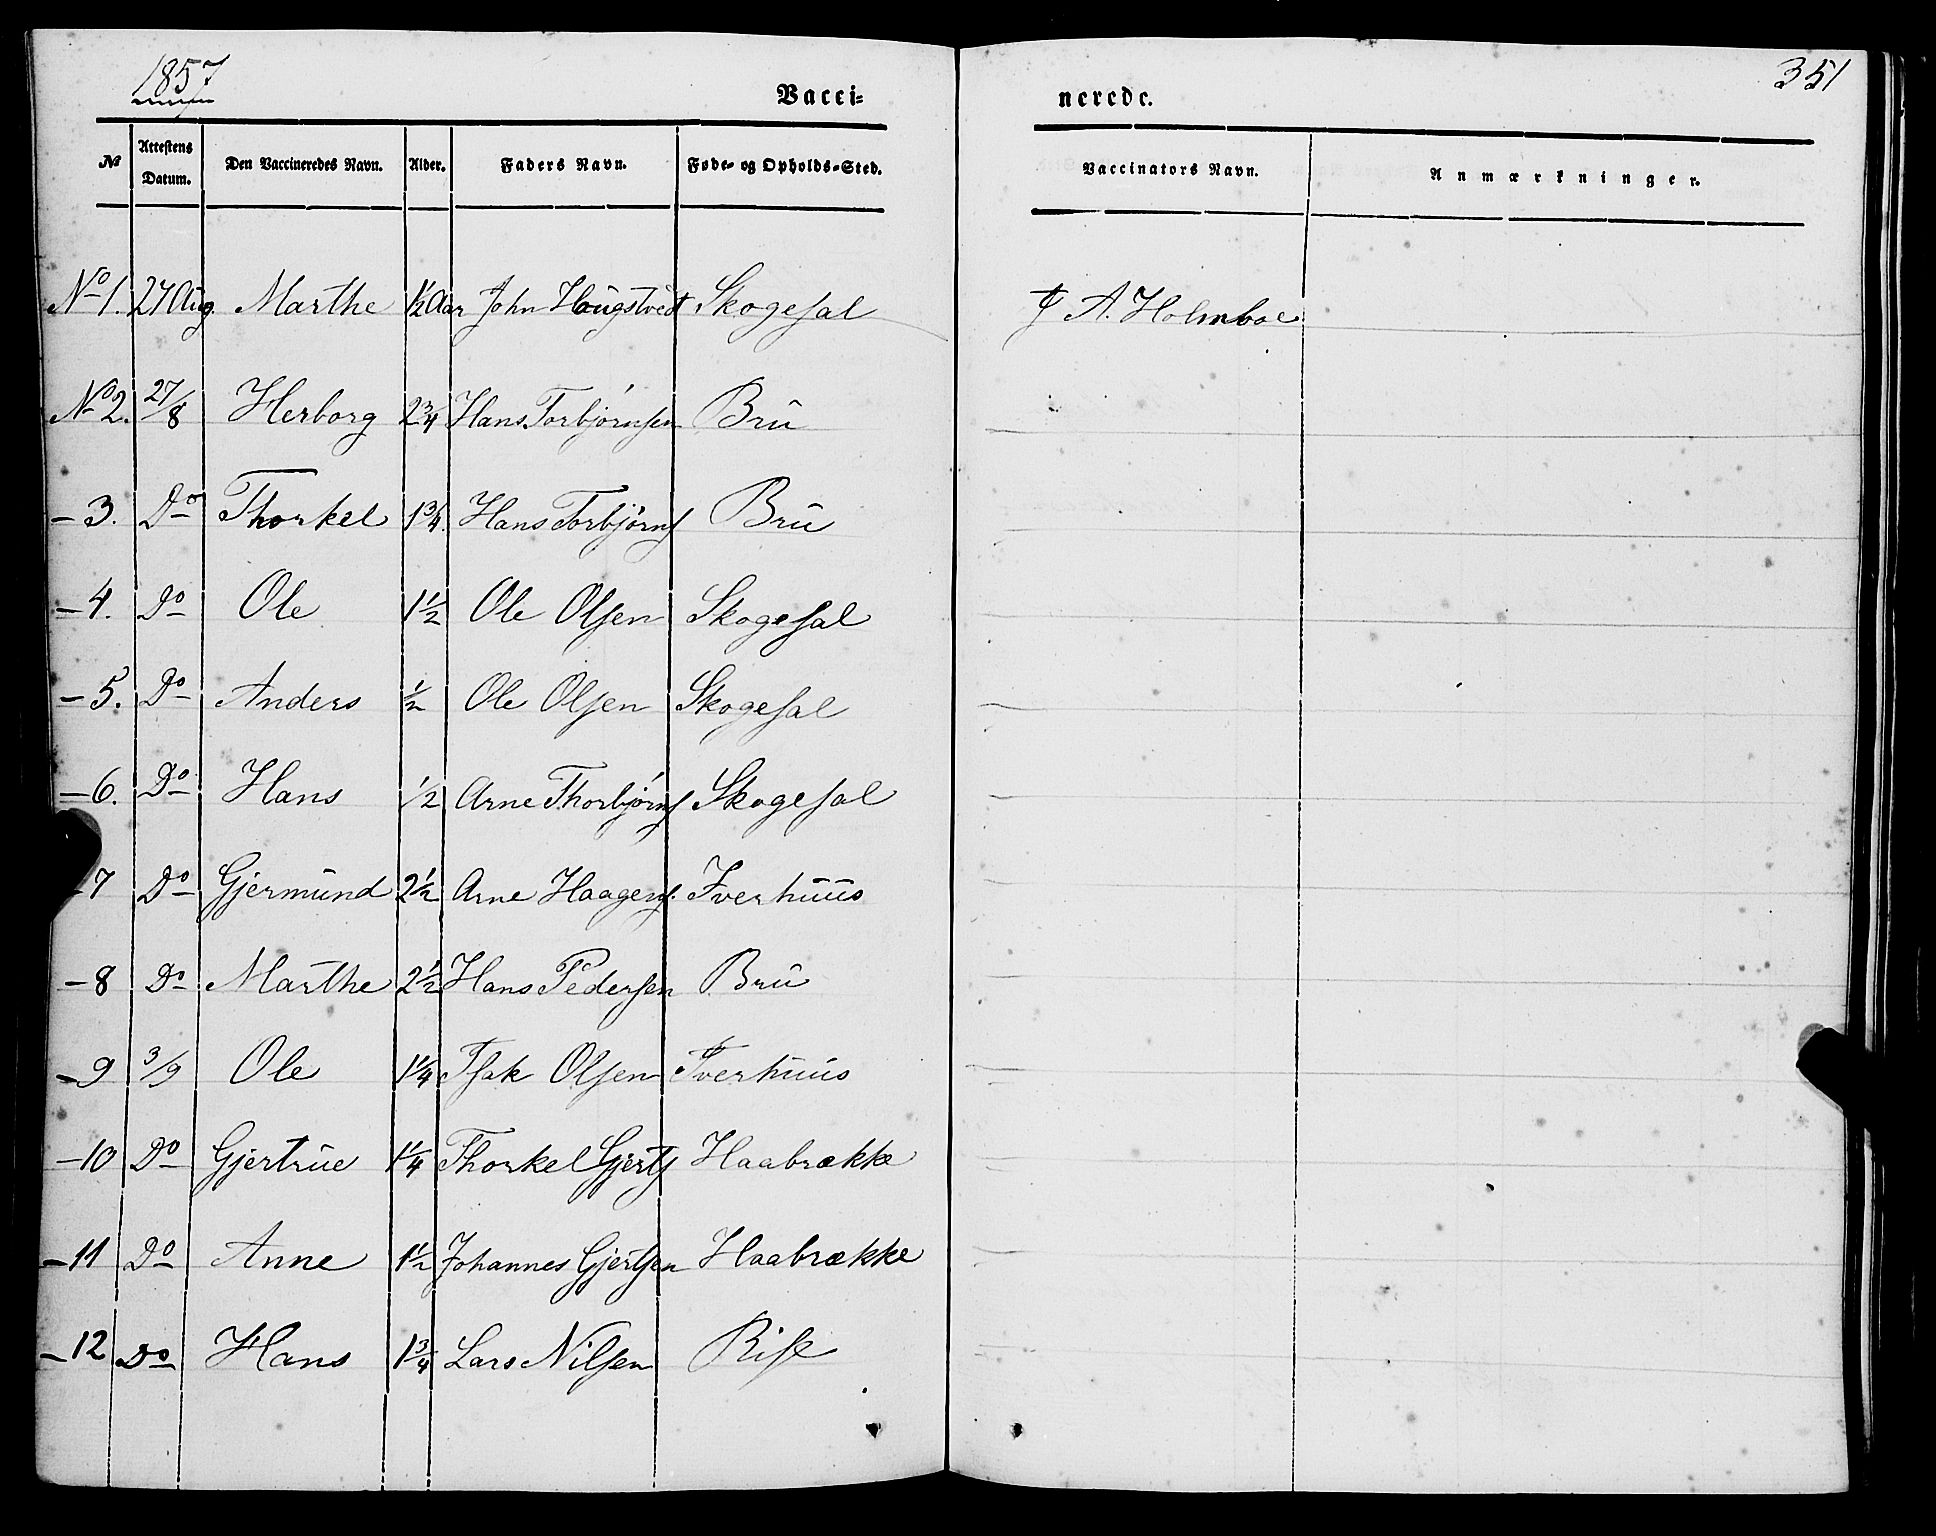 1857
351
Vacci=
nerede.
№ Attestens Datum. Den Vaccineredes Navn. Alder. Faders Navn. Føde- og Opholds-Sted. Vaccinators Navn. Anmærkninger.
No 1. 27 Aug. Marthe 1½ Aar John Haugstvedt Skogesal J A. Holmboe
No 2. 27/8 Herborg 2¾ Hans Torbjørnsen Bru
- 3. Do Thorkel 1¾ Hans Torbjørns Bru
- 4. Do Ole 1½ Ole Olsen Skogesal
- 5. Do Anders ½ Ole Olsen Skogesal
- 6. Do Hans ½ Arne Thorbjørns Skogesal
- 7 Do Gjermund 2½ Arne Haagens. Iverhuus
- 8 Do Marthe 2½ Hans Pedersen Bru
- 9 3/9 Ole 1¼ Isak Olsen Iverhuus
- 10 Do Gjertrue 1¼ Thorkel Gjerts Haabrække
- 11 Do Anne 1½ Johannes Gjertsen Haabrække
- 12 Do Hans 1¾ Lars Nilsen Rise